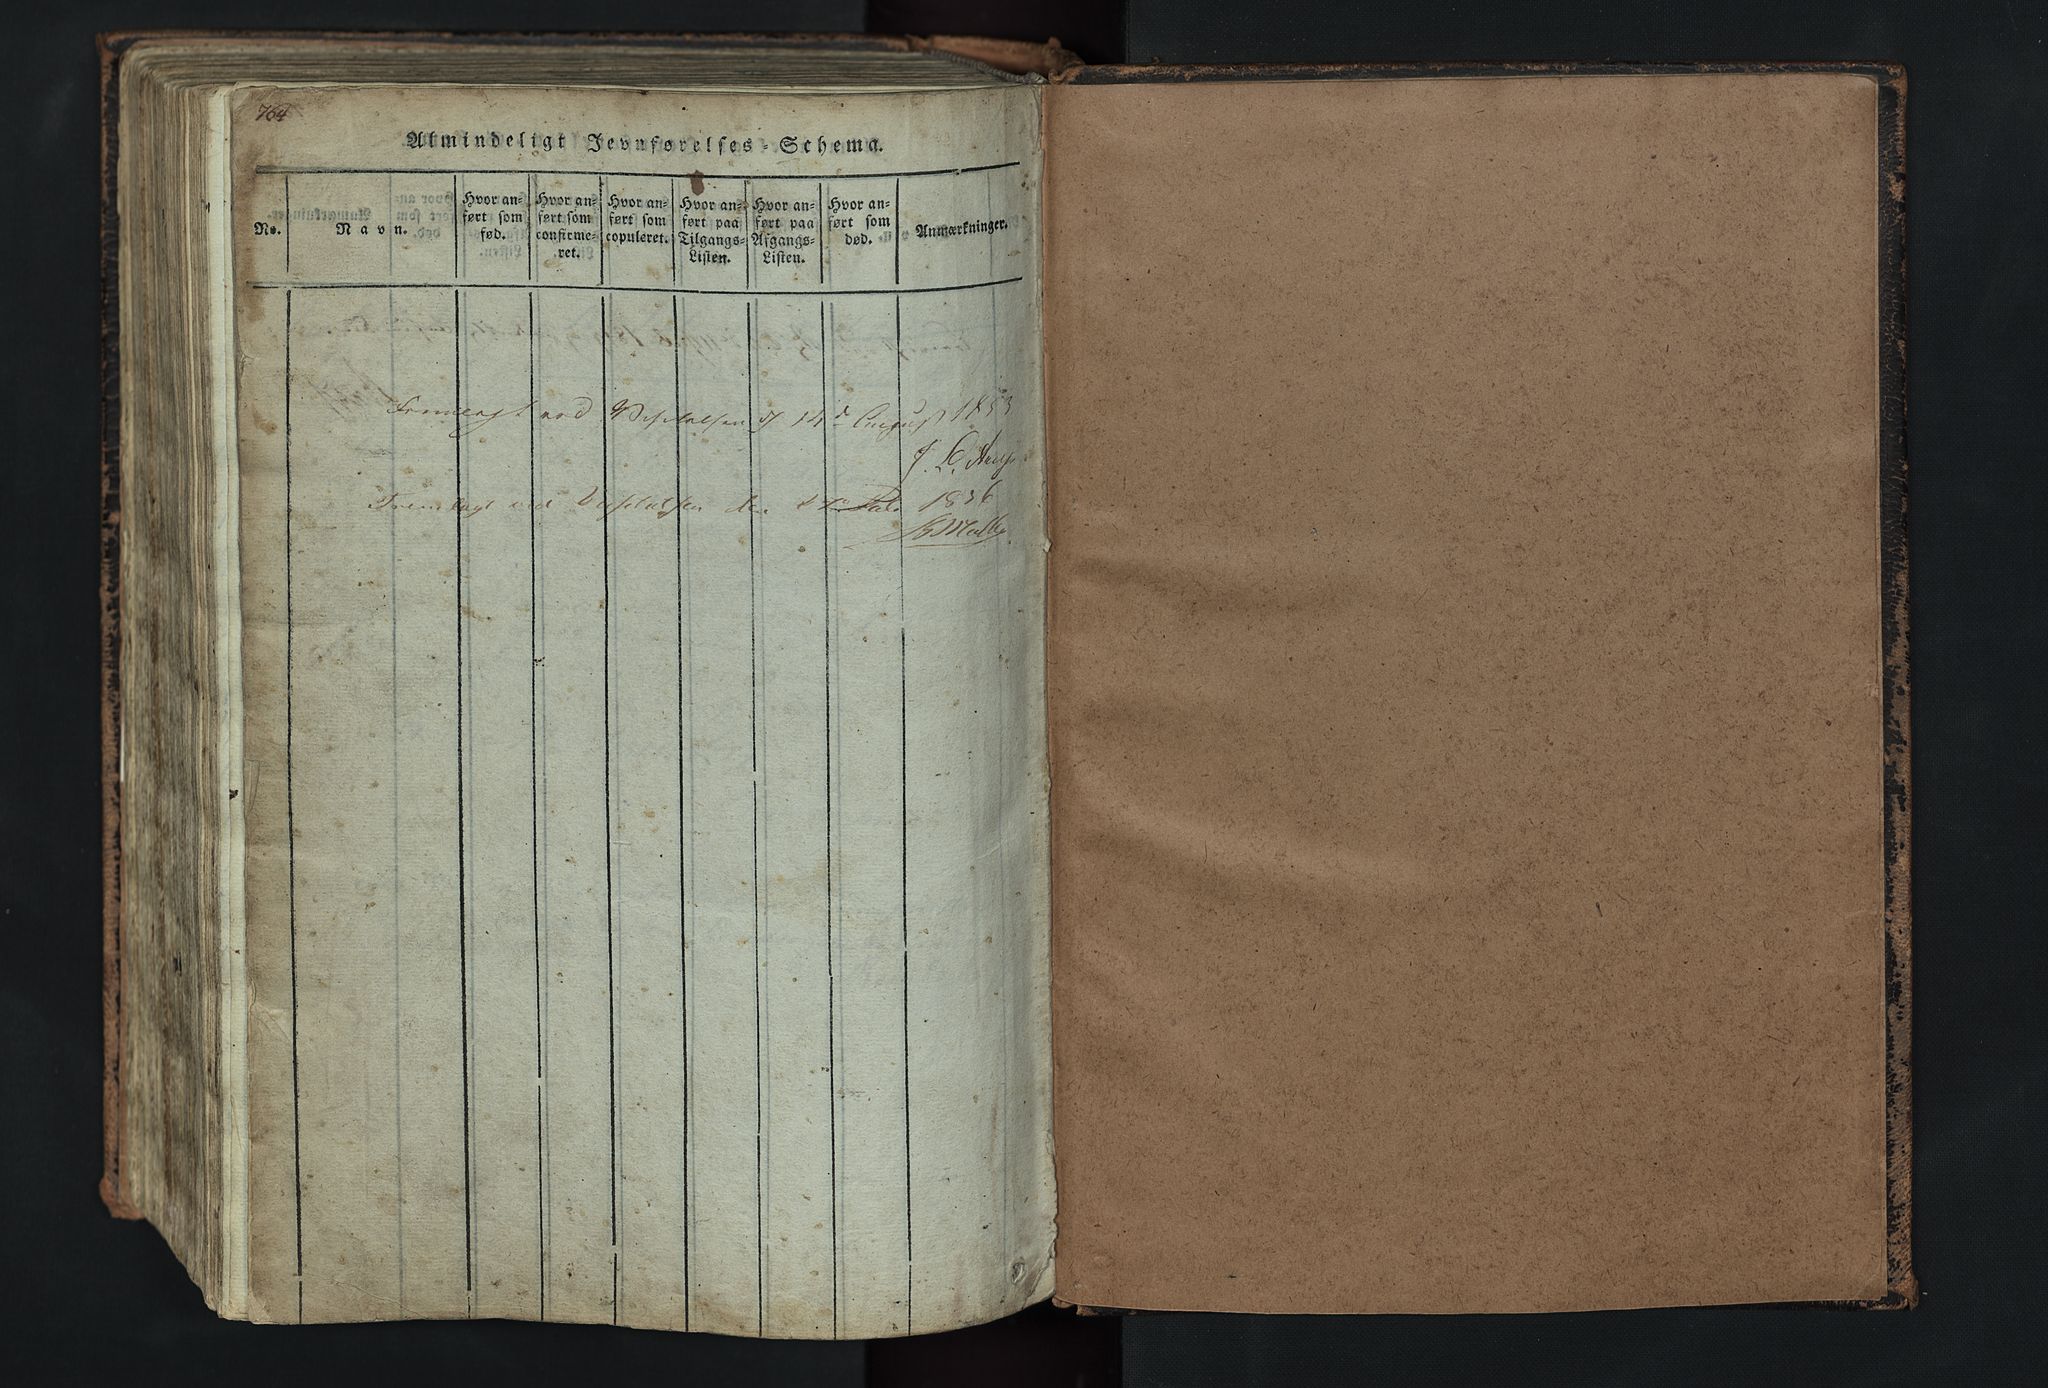 764
Almindeligt Jevnførelses-Schema.
No.
Navn.
Hvor anført som fød.
Hvor anført som confirmeret.
Hvor anført som copuleret.
Hvor anført paa Tilgangs-Listen.
Hvor anført paa Afgangs-Listen.
Hvor anført som død.
Anmærkninger.
Fremlagt ved Visitatsen d 14de August 1853
Fremlagt ved Visitatsen den 1836